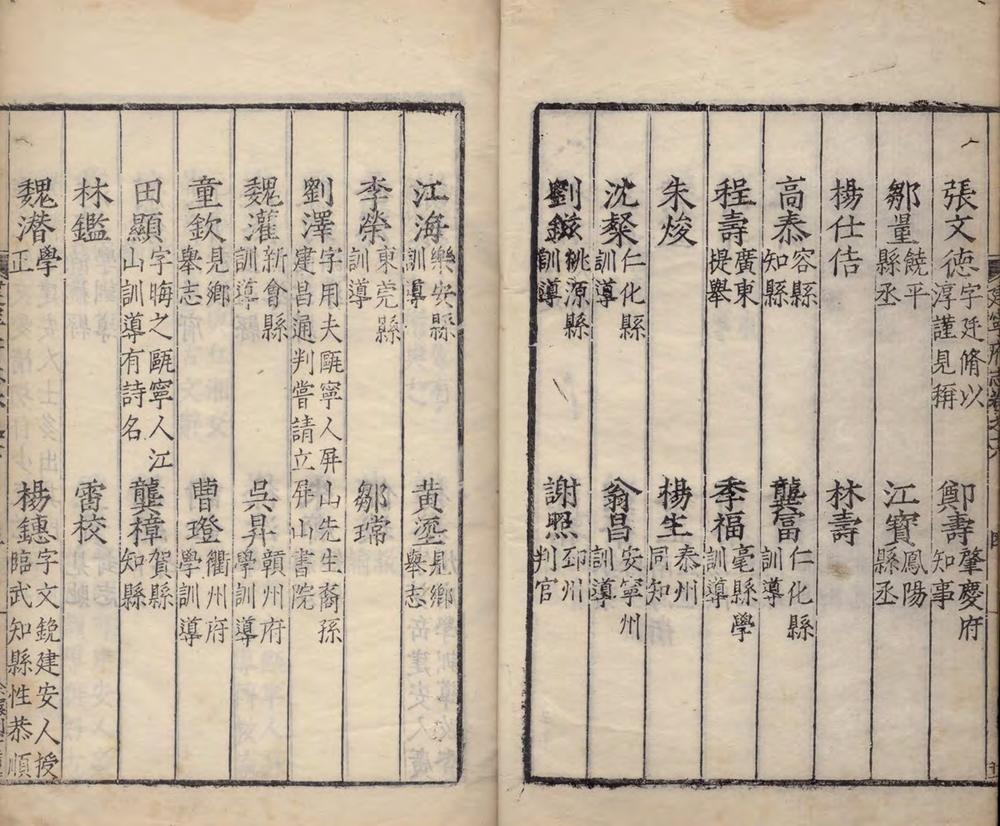 張文德 字廷脩以淳謹見稱 鄭壽 肇慶府知事
鄒量 饒平縣丞 江寳 鳳陽縣丞
楊仕佶 林壽
高㤗 容縣知縣 龔富 仁化縣訓導
程壽 廣東提舉 季福 亳縣學訓導
朱焌 楊生 泰州同知
沈粲 仁化縣訓導 翁昌 安寧州訓導
劉鎡 桃源縣訓導 謝照 邳州判官
江海 樂安縣訓導 黄 見鄉舉志
李榮 東莞縣訓導 鄒瑺
劉澤 字用夫甌寧人屏山先生裔孫建昌通判嘗請立屏山書院
魏灌 新會縣訓導 吳昇 贛州府學訓導
童欽 見鄉舉志 曹璒 衢州府學訓導
田顯 字晦之甌寧人江山訓導有詩名 龔樟 賀縣知縣
林鑑 雷校
魏潜 學正 楊鏸 字文鋭建安人授臨武知縣性恭順
建寧府志卷之六